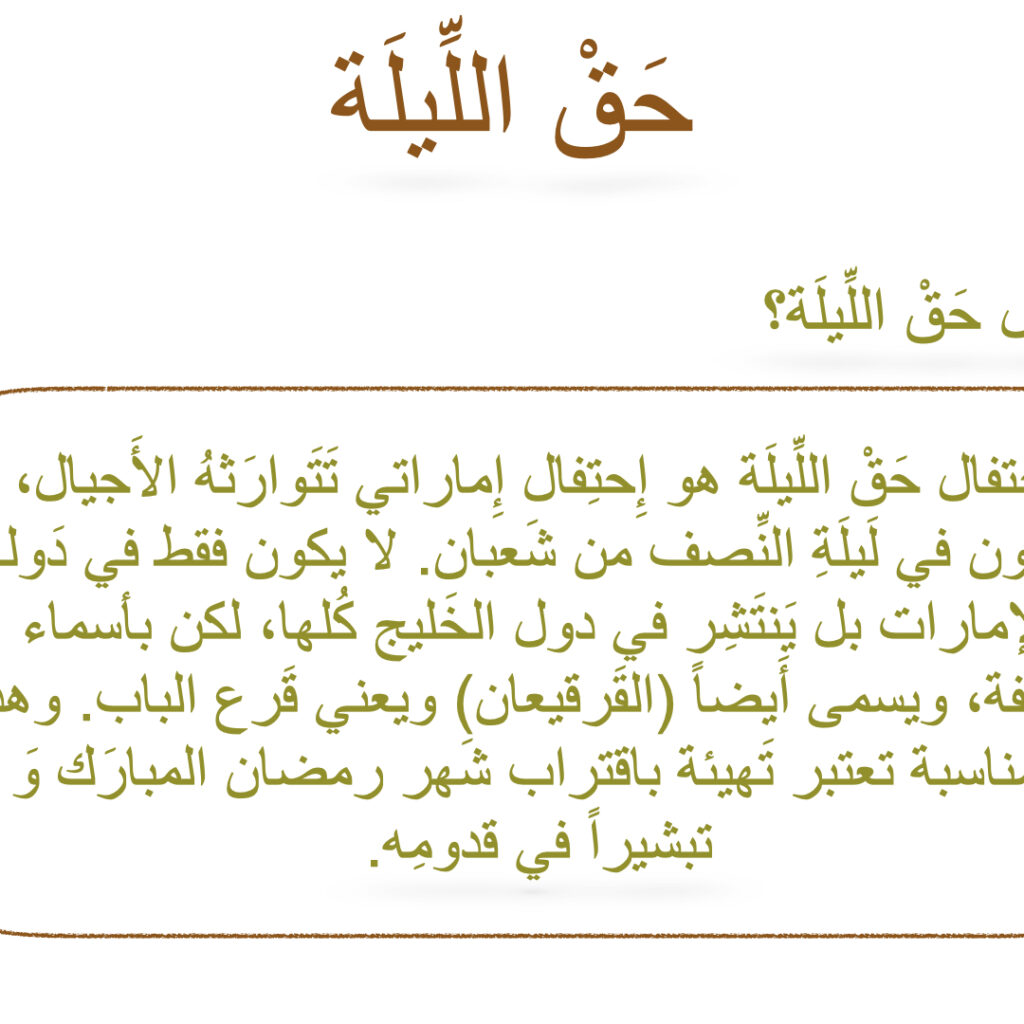 حَقْ اللِّيلَة
حَقْ اللِّيلَة؟
حَقْ اللِّيلَة هو إِحتِفال إِماراتي تَتَوارَثهُ الأَجيال،
في لَيلَةِ النِّصف من شَعبان. لا يكون فقط في
بل يَنتَشِر في دول الخَليج كُلها، لكن بأسماء
ويسمى أَيضاً (القَرقيعان) ويعني قَرع الباب.
تعتبر تَهيئة باقتراب شَهر رمضان المبارَك وَ
تبشيراً في قدومِه.